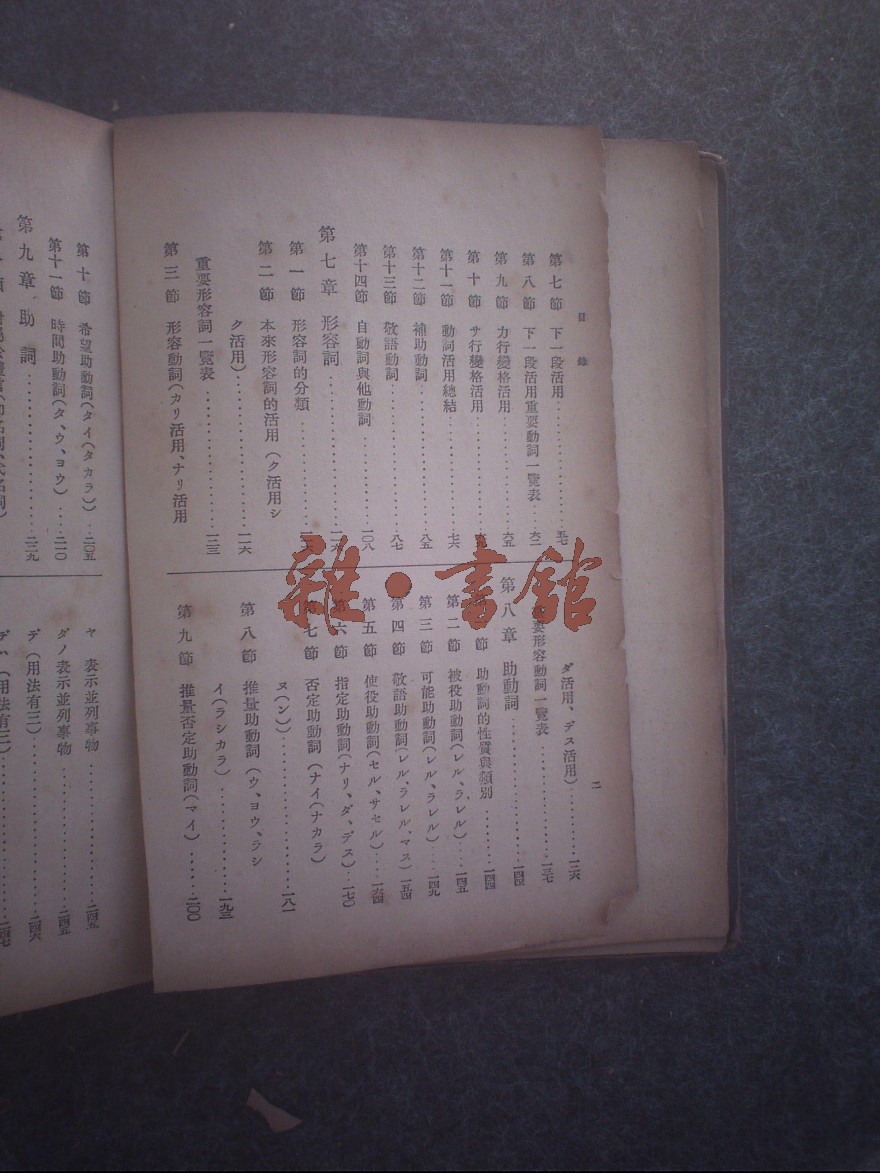 目錄
第七節 下一段活用……五七
第八節 下一段活用重要動詞一覽表……六二
第九節 カ行變格活用……六五
第十節 サ行變格活用……
第十一節 動詞活用總結……七六
第十二節 補助動詞……八五
第十三節 敬語動詞……八七
第十四節 自動詞與他動詞……一〇八
第七章 形容詞……
第一節 形容詞的分類……
第二節 本來形容詞的活用(ク活用シ
ク活用)……一一六
重要形容詞一覽表……一二三
第三節 形容動詞(カリ活用、ナリ活用
ダ活用、デス活用)……一三六
要形容動詞一覽表……一三七
第八章 助動詞……一四四
節 助動詞的性質與類別……一四四
第二節 被役助動詞(レル、ラレル)……一四五
第三節 可能助動詞(レル、ラレル)……一四九
第四節 敬語助動詞(レル、ラレル、マス)一五四
第五節 使役助動詞(セル、サセル)……一六四
第六節 指定助動詞(ナリ、ダ、デス)…一七〇
第七節 否定助動詞(ナイ(ナカラ)
ヌ(ン))……一八一
第八節 推量助動詞(ウ、ヨウ、ラシ
イ(ラシカラ)……一九三
第九節 推量否定助動詞(マイ)……二〇〇
二
第十節 希望助動詞(タイ(タカラ))…二〇五
第十一節 時間助動詞(タ、ウ、ヨウ)……二一〇
第九章 助詞……二二九
ヤ 表示並列事物……二四五
ダノ表示並列事物……二四五
デ(用法有三)……二四六
デハ(用法有三)……二四七
雜·書舘